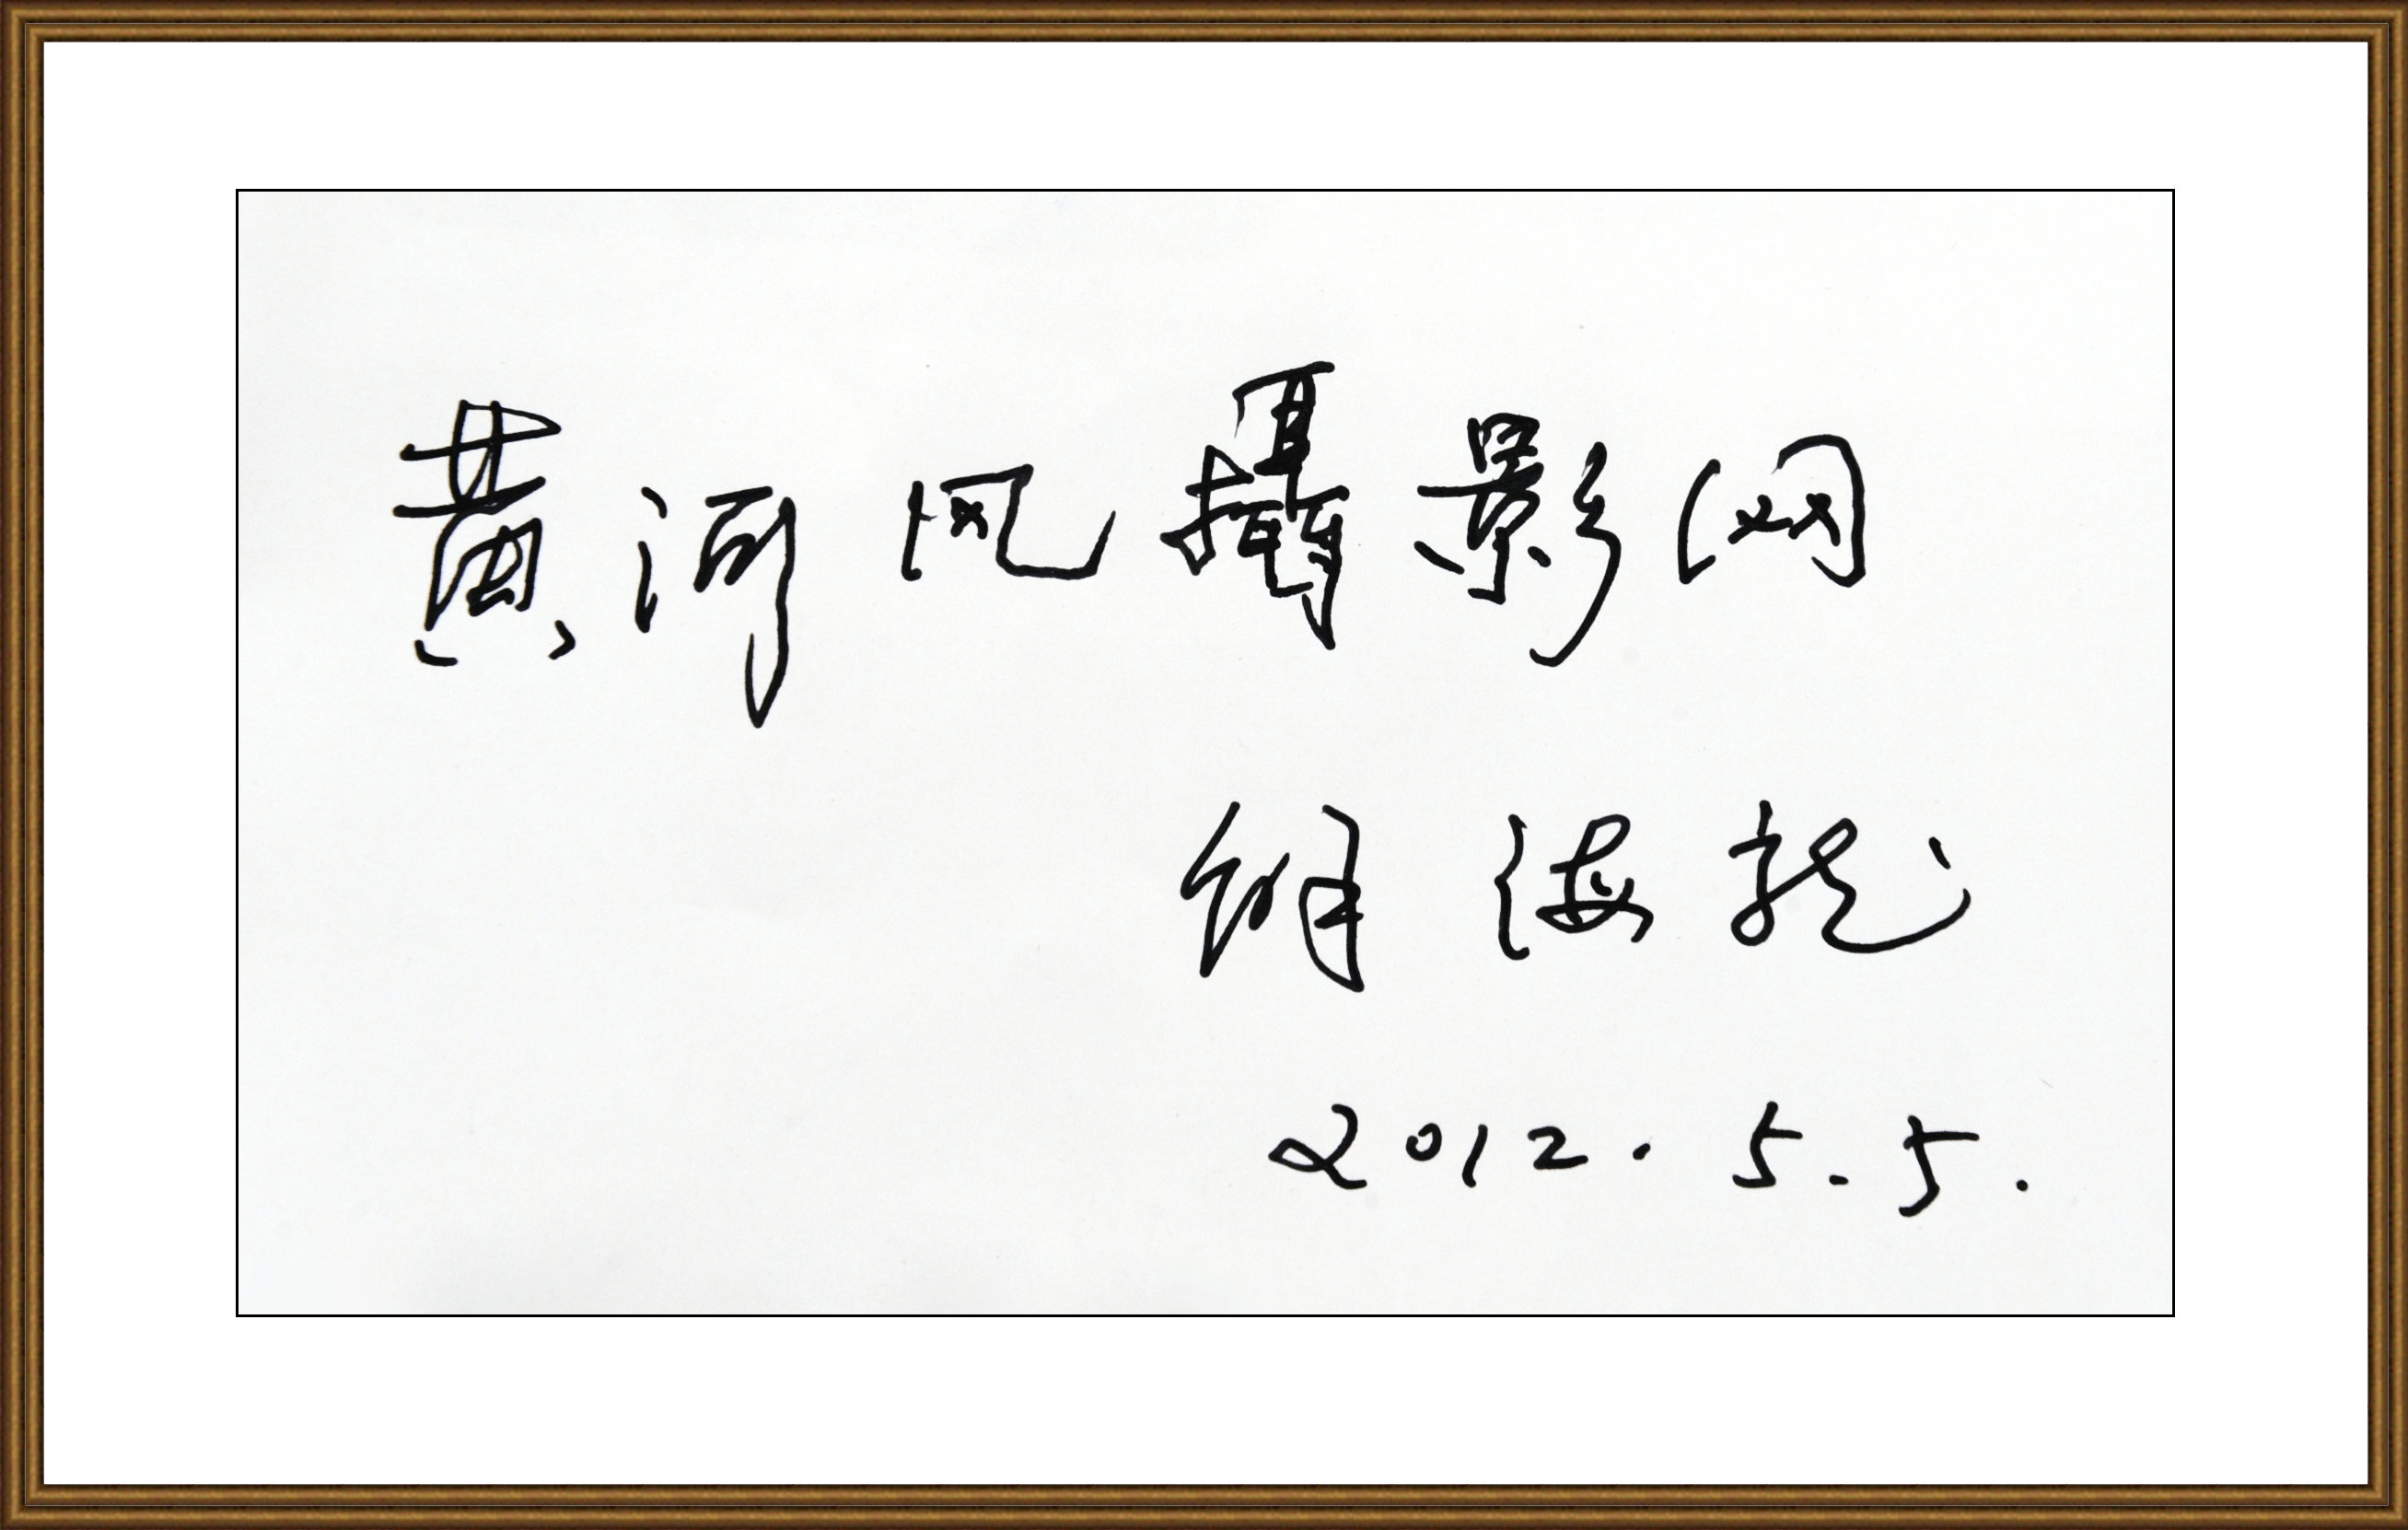 黄河风攝影网
海龙
2012.5.5.